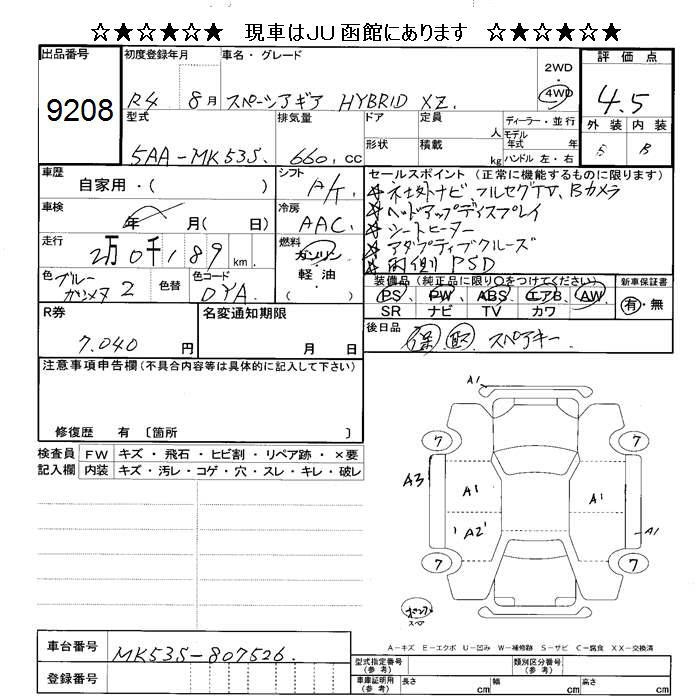 ☆★☆★☆★ 現車はJU函館にあります ☆★☆★☆★
出品番号 初度登録年月 車名・グレード 2WD 評価点
9208 R4 8月 スペーシアギア HYBRID XZ. 4WD 4.5
型式 排気量 ドア 定員 人 ディーラー・並行 外装 内装
5AA-MK53S. 660. cc 形状 積載 kg モデル年式 年 B
ハンドル 左・右
車歴 シフト セールスポイント (正常に機能するものに限ります)
自家用・( ) A/T ★ 社外ナビ フルセグTV、Bカメラ
車検 冷房 ★ ヘッドアップディスプレイ
年 月( 日) AAC. ★ シートヒーター
走行 燃料 ★ アダプティブクルーズ
2万0千189 km ガソリン ★ 両側PSD
軽油
( )
色 色替 色コード 装備品 (純正品に限り○をつけてください) 新車保証書
ブルー ガンメタ2 DYA. PS PW ABS エアB AW 有・無
SR ナビ TV カワ
R券 名変通知期限 後日品
7.040 円 月 日 保 取 スペアキー
注意事項申告欄(不具合内容等は具体的に記入して下さい)
修復歴 有 〔箇所 〕
検査員 FW キズ・飛石・ヒビ割・リペア跡・×要
記入欄 内装 キズ・汚レ・コゲ・穴・スレ・キレ・破レ
A1
7 7
A3 A1 A1
A2 A1
7 7
ボンプ
スペ
A-キズ E-エクボ U-凹み W-補修跡 S-サビ C-腐食 XX-交換済
車台番号 MK53S-807526.
型式指定番号(参考) 類別区分番号(参考)
登録番号 車庫証明用(参考) 長さ cm 幅 cm 高さ cm